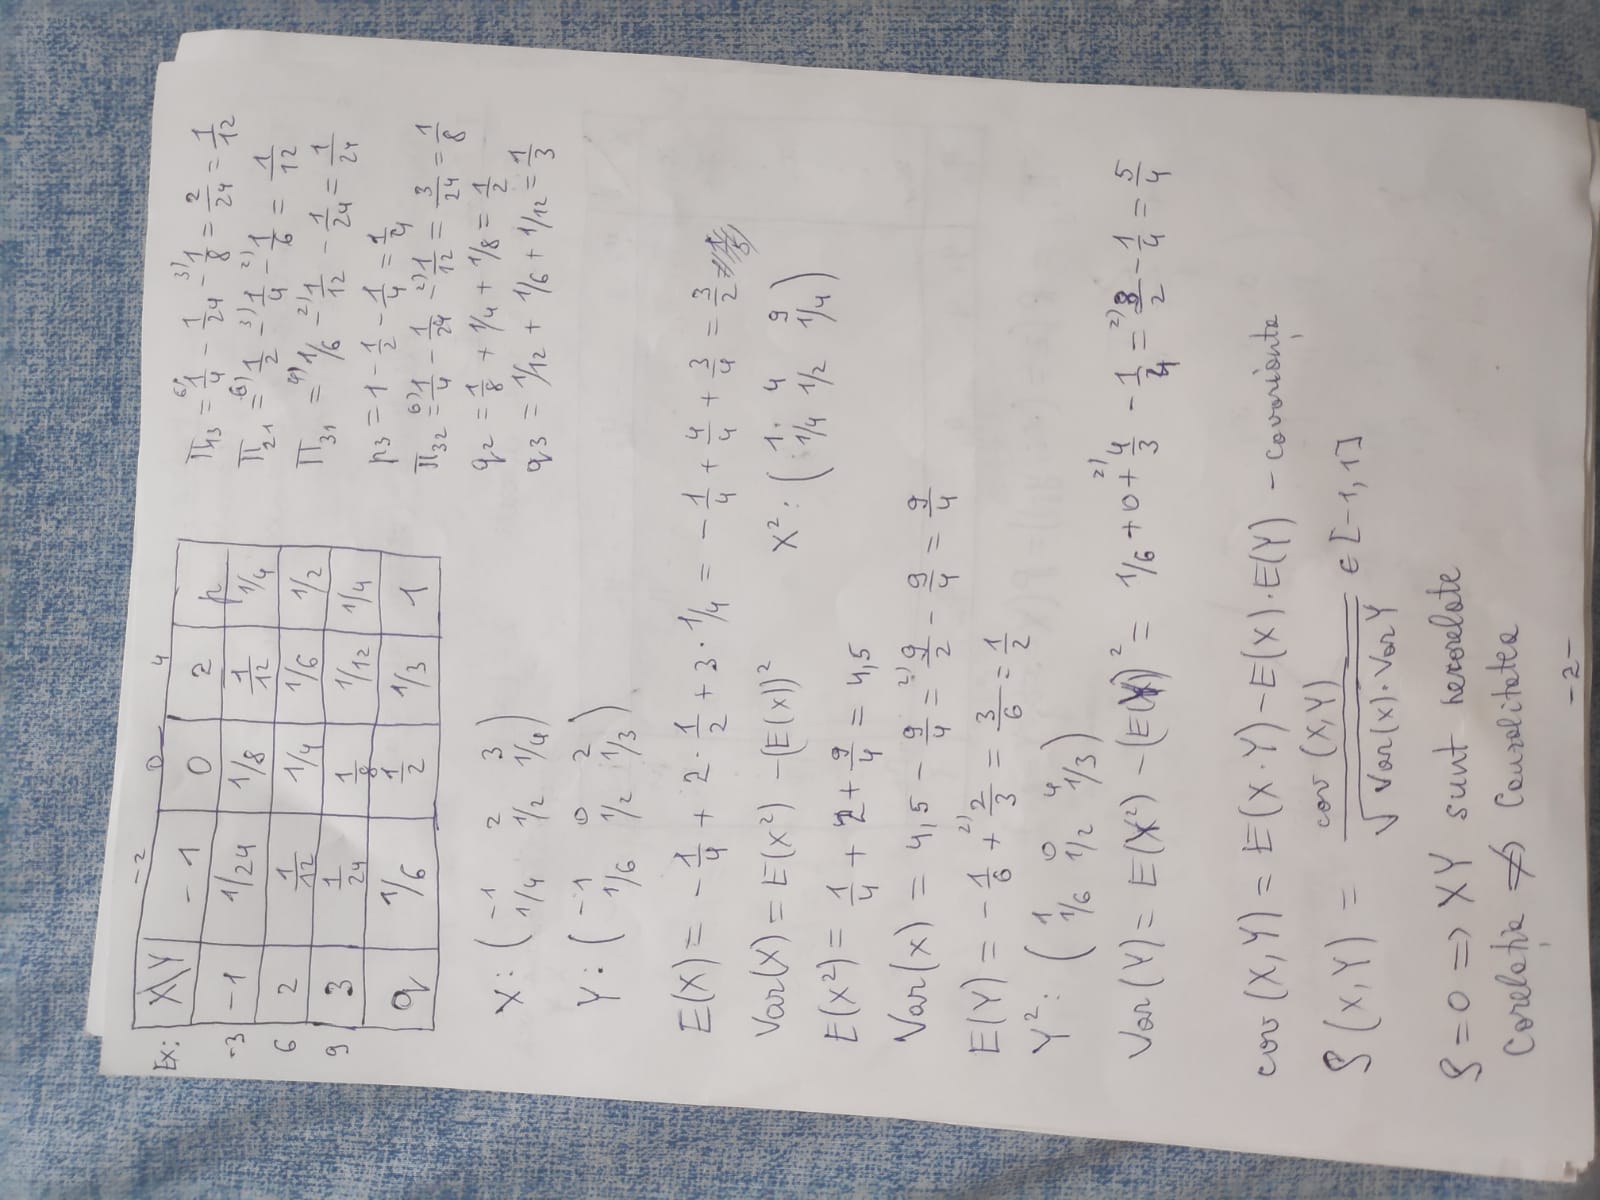 Ex: -2 0 4
X\Y -1 0 2 p
-3 -1 1/24 1/8 1/12 1/4
6 2 1/12 1/4 1/6 1/2
9 3 1/24 1/8 1/12 1/4
q 1/6 1/2 1/3 1
π₁₃ = ⁶⁾1/4 - 1/24 - ³⁾1/8 = 2/24 = 1/12
π₂₁ = ⁶⁾1/2 - ³⁾1/4 - ²⁾1/6 = 1/12
π₃₁ = ⁴⁾1/6 - ²⁾1/12 - 1/24 = 1/24
p₃ = 1 - 1/2 - 1/4 = 1/4
π₃₂ = ⁶⁾1/4 - 1/24 - ²⁾1/12 = 3/24 = 1/8
q₂ = 1/8 + 1/4 + 1/8 = 1/2
q₃ = 1/12 + 1/6 + 1/12 = 1/3
X: (-1 2 3
1/4 1/2 1/4)
Y: (-1 0 2
1/6 1/2 1/3)
E(X) = -1/4 + 2·1/2 + 3·1/4 = -1/4 + 4/4 + 3/4 = 3/2
Var(X) = E(X²) - (E(X))²
X²: (1 4 9
1/4 1/2 1/4)
E(X²) = 1/4 + 2 + 9/4 = 4,5
Var(X) = 4,5 - 9/4 = ²⁾9/2 - 9/4 = 9/4
E(Y) = -1/6 + ²⁾2/3 = 3/6 = 1/2
Y²: (1 0 4
1/6 1/2 1/3)
Var(Y) = E(Y²) - (E(Y))² = 1/6 + 0 + ²⁾4/3 - 1/4 = ²⁾3/2 - 1/4 = 5/4
cov(X,Y) = E(X·Y) - E(X)·E(Y) - covarianța
ρ(X,Y) = cov(X,Y)/√Var(X)·Var Y ∈ [-1,1]
ρ = 0 => XY sunt necorelate
Corelația ⇏ Cauzalitatea
-2-